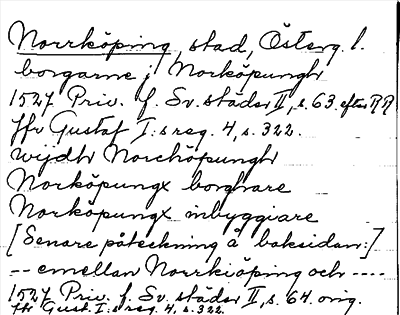 Norrköping, stad, Österg. l.
borgarne j Norköpungh
1527 Priv. f. Sv. städer II, s. 63. efter RR
Jfr Gustaf I:s reg. 4, s. 322.
wijdh Norchöpungh
Norköpungx borghare
Norköpungx inbyggiare
[Senare påteckning å baksidan:]
-- emellan Norrkiöping och ----
1527 Priv. f. Sv. städer II, s. 64. orig.
Jfr Gust. I:s reg. 4, s. 322.